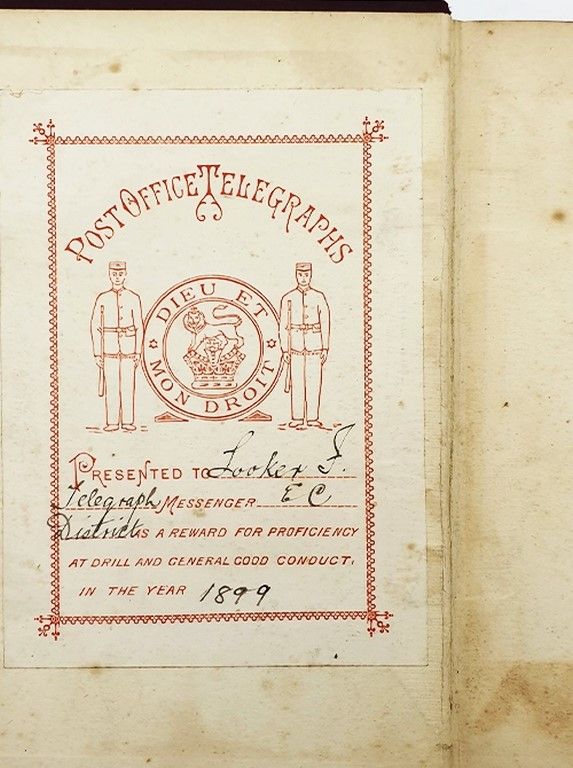 POST OFFICE TELEGRAPHS
DIEU ET
MON DROIT
PRESENTED TO Looker F.
Telegraph MESSENGER E C
District AS A REWARD FOR PROFICIENCY
AT DRILL AND GENERAL GOOD CONDUCT,
IN THE YEAR 1899